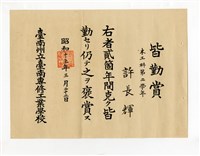 皆勤賞
木工科第二學年
許長輝
右者貳箇年間克ク皆
勤セリ仍テ之ヲ褒賞ス
昭和十五年三月二十日
臺南州立臺南專修工業學校